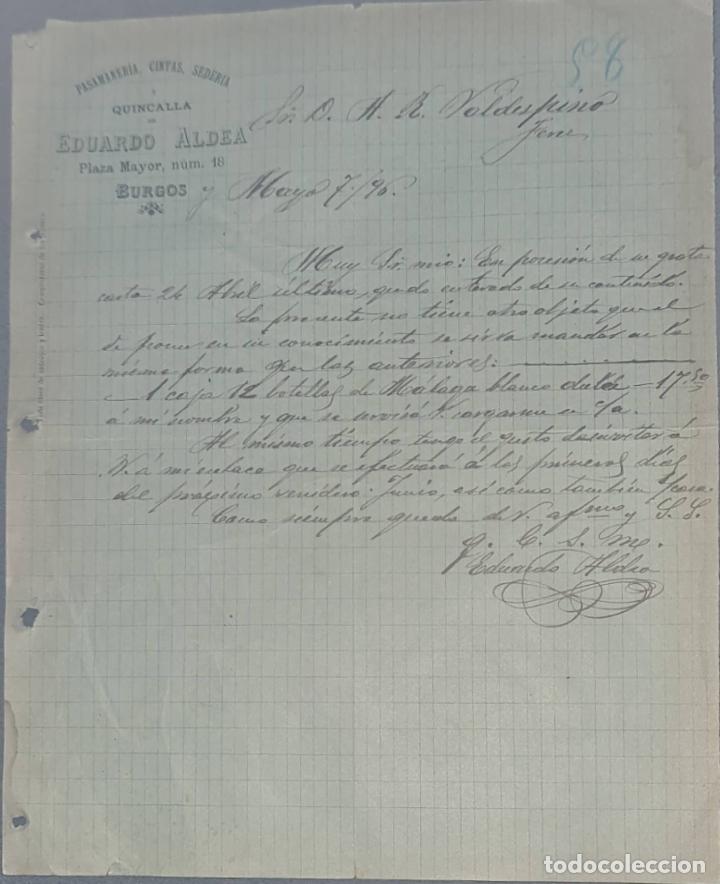 58
PASAMANERÍA, CINTAS, SEDERÍA
Y
QUINCALLA
DE
EDUARDO ALDEA
Plaza Mayor, núm. 18
BURGOS y Mayo 7/96.
Sr. D. A. R. Valdespino
Jerez
Muy Sr. mio: En posesión de su grata
carta 24 Abril último, quedo enterado de su contenido.
La presente no tiene otro objeto que el
de poner en su conocimiento se sirva mandar en la
misma forma que las anteriores:
1 caja 12 botellas de Málaga blanco dulce - 17.50
á mi nombre y que se servirá V. cargarme en c/a.
Al mismo tiempo tengo el gusto de invitar á
V. á mi enlace que se efectuará á los primeros días
del próximo venidero: Junio, así como también
Como siempre queda de V. afmo y S. S.
q. b. s. m.
Eduardo Aldea
todocoleccion
todocoleccion.net